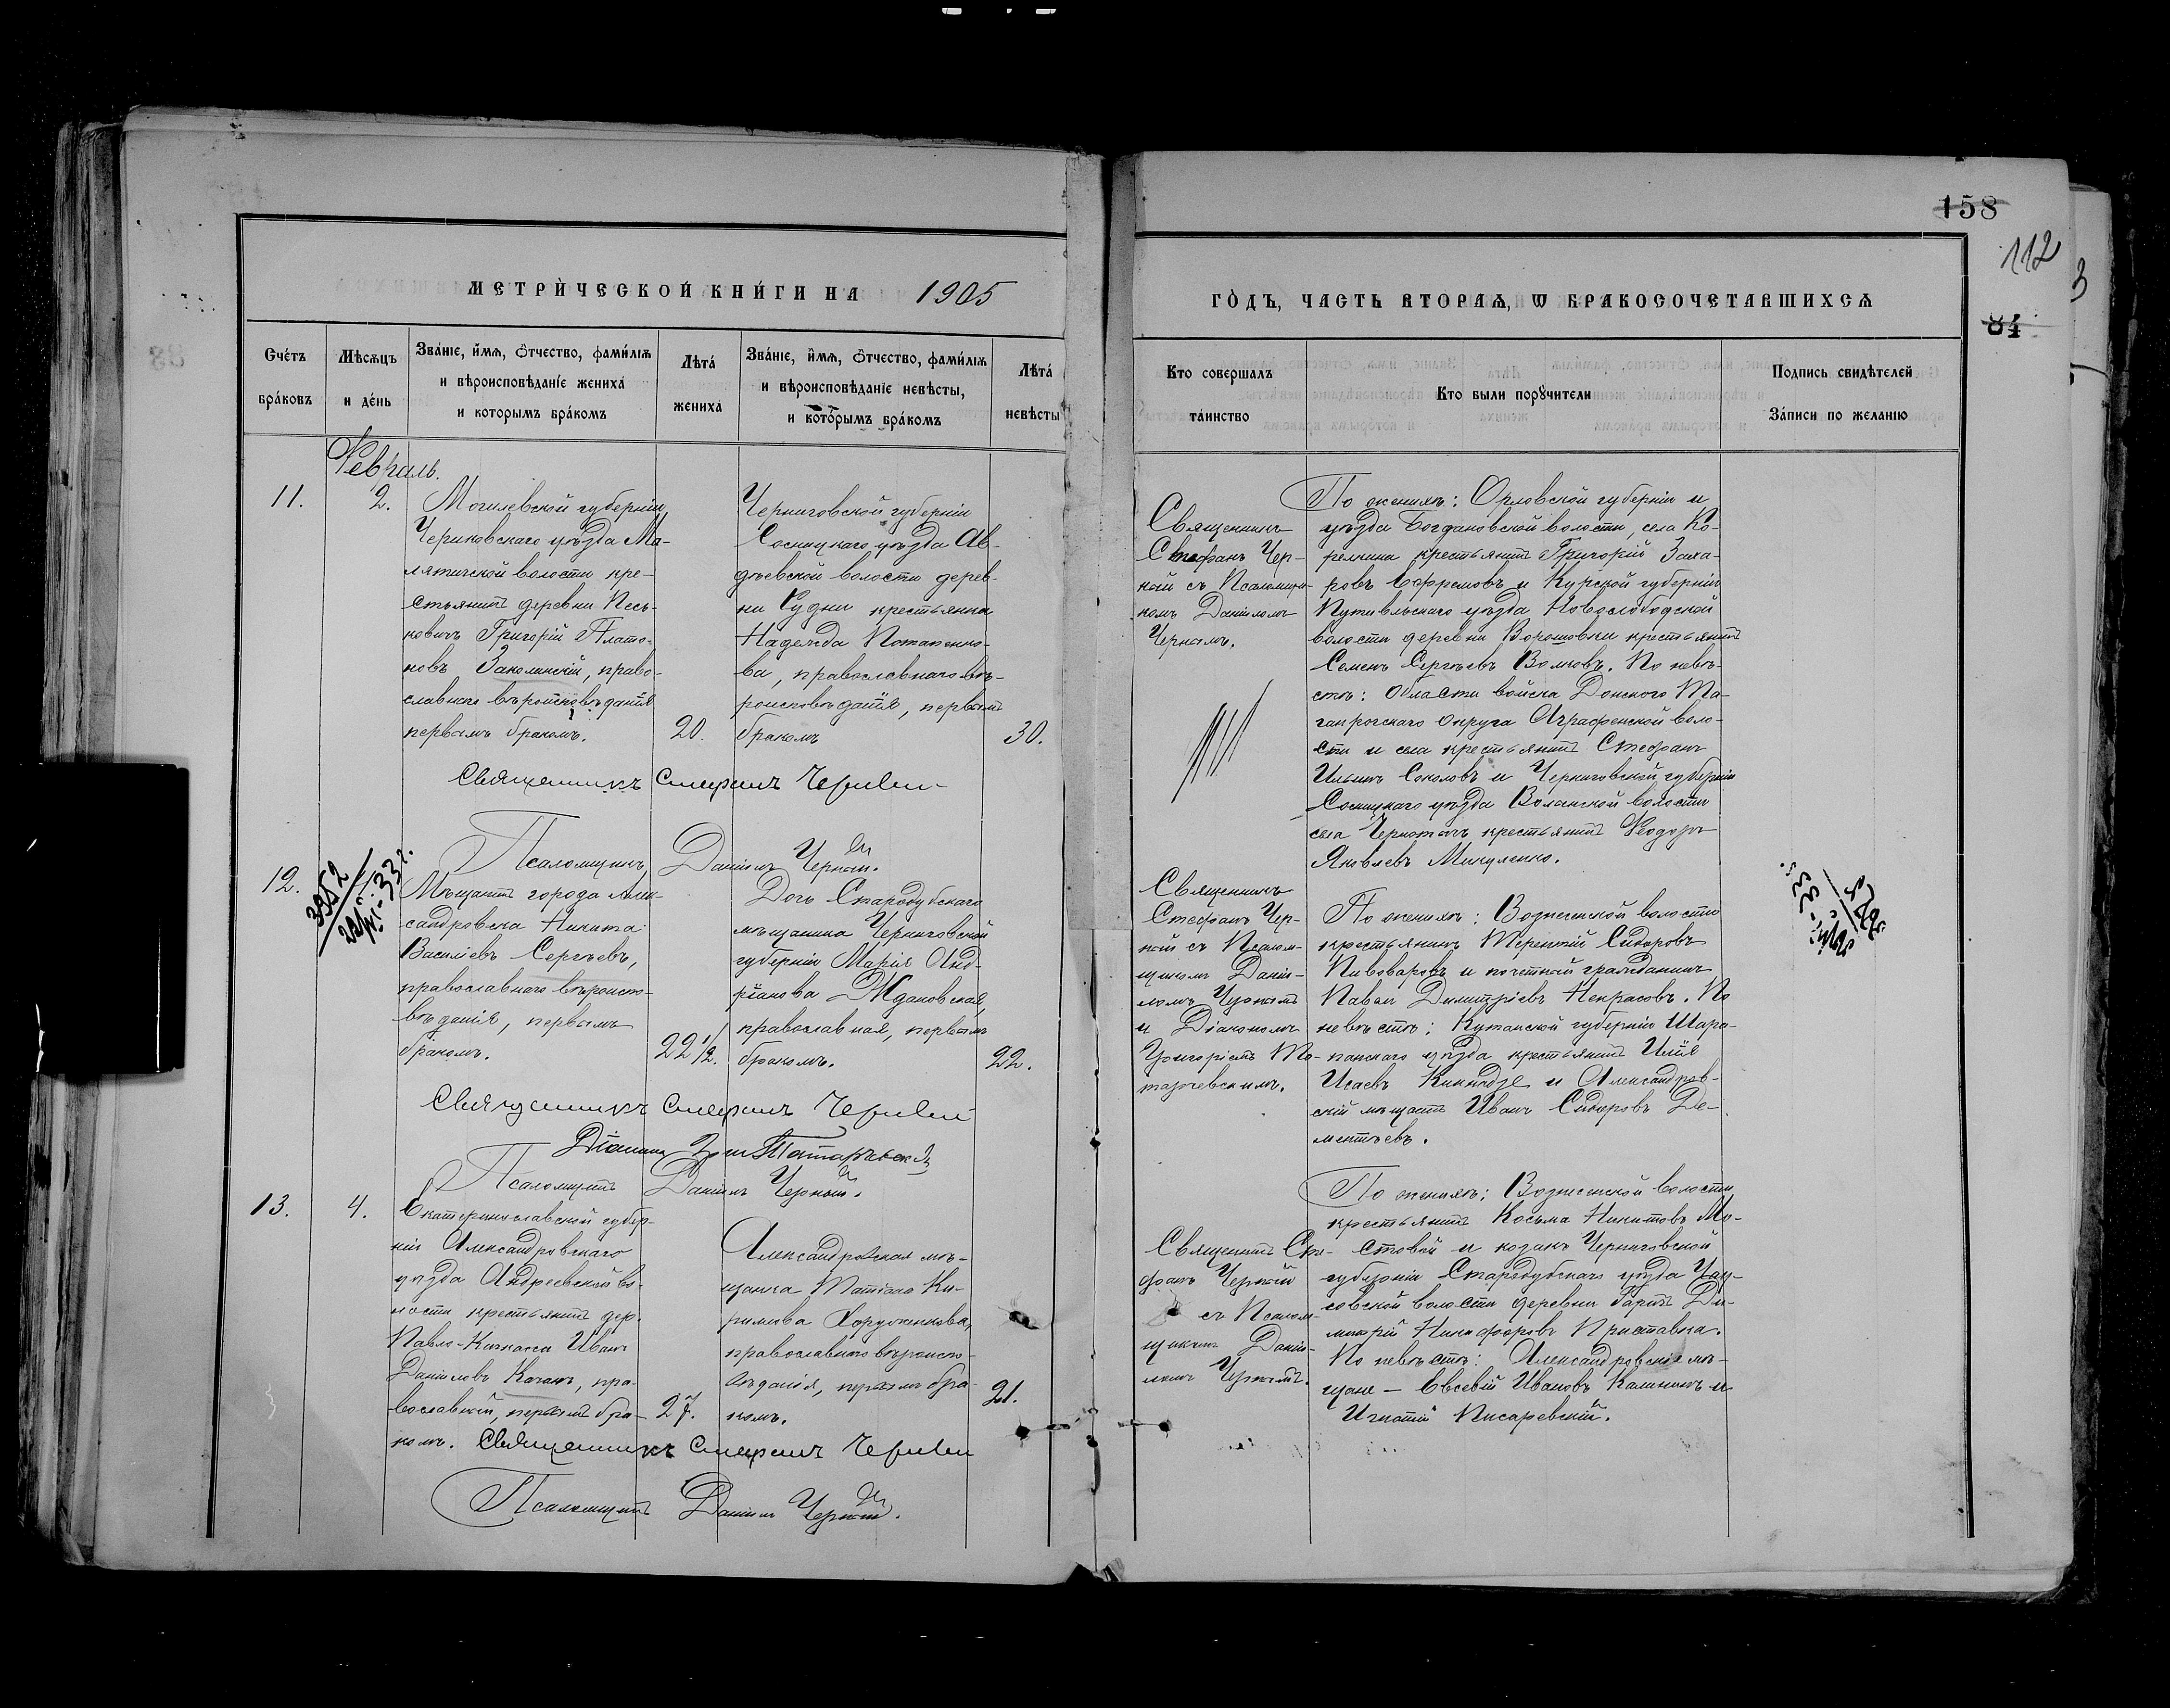 158
112
84
МЕТРИ́ЧЕСКОЙ КНИ́ГИ НА 1905
ГО́ДЪ, ЧАСТЬ ВТОРАѦ, Ѡ БРАКОСОЧЕТАВШИХСѦ
Сче́тъ
бра́ковъ
Мѣсѧцъ
и де́нь
Зва́нїе, и́мѧ, о́тчество, фами́лїѧ
и вѣроисповѣда́нїе жениха̀
и которымъ бра́комъ
Лѣта̀
жениха̀
Зва́нїе, и́мѧ, о́тчество, фами́лїѧ
и вѣроисповѣданїе невѣ́сты,
и кото́рымъ бра́комъ
Лѣта̀
невѣ́сты
Кто совершалъ
та́инство
Кто были порꙋчители
Подпись свидѣ́телей
За́писи по жела́нїю
Февраль.
11.
2.
Могилевской губерніи,
Чериковскаго уѣзда Ма-
лятичской волости кре-
стьянинъ деревни Песь-
ковичъ Григорій Плато-
новъ Законинскій, право-
славнаго вѣроисповѣданія
первымъ бракомъ.
20.
Черниговской губерніи
Сосницкаго уѣзда Ав-
дѣевской волости дерев-
ни Рудни крестьянка
Надежда Потапенко-
ва, православнаго вѣ-
роисповѣданія, первымъ
бракомъ
30.
Священникъ
Стефанъ Чер-
ный съ Псаломщи-
комъ Даніиломъ
Чернымъ.
По женихѣ: Орловской губерніи и
уѣзда Богдановской волости, села Ко-
релкина крестьянинъ Григорій Заха-
ровъ Ефремовъ и Курской губерніи
Путивльскаго уѣзда Новослободской
волости деревни Ворошовки крестьянинъ
Семенъ Сергѣевъ Волковъ. По невѣ-
стѣ: Области войска Донского Та-
ганрогскаго округа Аграфенской воло-
сти и села крестьянинъ Стефанъ
Ильинъ Соколовъ и Черниговской губерніи
Сосницкаго уѣзда Волынской волости
села Чернотичъ крестьянинъ Ѳеодоръ
Яковлевъ Микуленко.
Священникъ Стефанъ Черный
Псаломщикъ Даніилъ Черный.
12.
3952
Мѣщанинъ города Алек-
сандровска Никита
Василіевъ Сергѣевъ,
православнаго вѣроиспо-
вѣданія, первымъ
бракомъ.
22 1/2.
Дочь Стародубскаго
мѣщанина Черниговской
губерніи Марія Анд-
ріанова Ждановская,
православная, первымъ
бракомъ.
22.
Священникъ
Стефанъ Чер-
ный съ Псалом-
щикомъ Дані-
ломъ Чернымъ
и Діакономъ
Григоріемъ Та-
тарчевскимъ.
По женихѣ: Вознесенской волости
крестьянинъ Терентій Сидоровъ
Пивоваровъ и почетный гражданинъ
Павелъ Димитріевъ Некрасовъ. По
невѣстѣ: Кутаиской губерніи Шаро-
панскаго уѣзда крестьянинъ Илія
Исаевъ Кикнадзе и Александров-
скій мѣщанинъ Иванъ Сидоровъ Де-
ментьевъ.
Священникъ Стефанъ Черный
Псаломщикъ Даніилъ Черный.
13.
4.
Екатеринославской губер-
ніи Александровскаго
уѣзда Андреевской во-
лости крестьянинъ дер.
Павло-Кичкасса Иванъ
Даниловъ Качанъ, пра-
вославный, первымъ бра-
комъ.
27.
Александровская мѣ-
щанка Татіана Ки-
рилова Хоружевкова,
православнаго вѣроиспо-
вѣданія, первымъ бра-
комъ.
21.
Священникъ Сте-
фанъ Черный
съ Псалом-
щикомъ Дані-
ломъ Чернымъ.
По женихѣ: Вознесенской волости
крестьянинъ Косьма Никитовъ Мо-
стовой и козакъ Черниговской
губерніи Стародубскаго уѣзда
совской волости деревни Гаринъ Ди-
митрій Никифоровъ Приставка.
По невѣстѣ: Александровскіе мѣ-
щане – Евсевій Ивановъ Калининъ и
Игнатій Писаревскій.
Священникъ Стефанъ Черный
Псаломщикъ Даніилъ Черный.